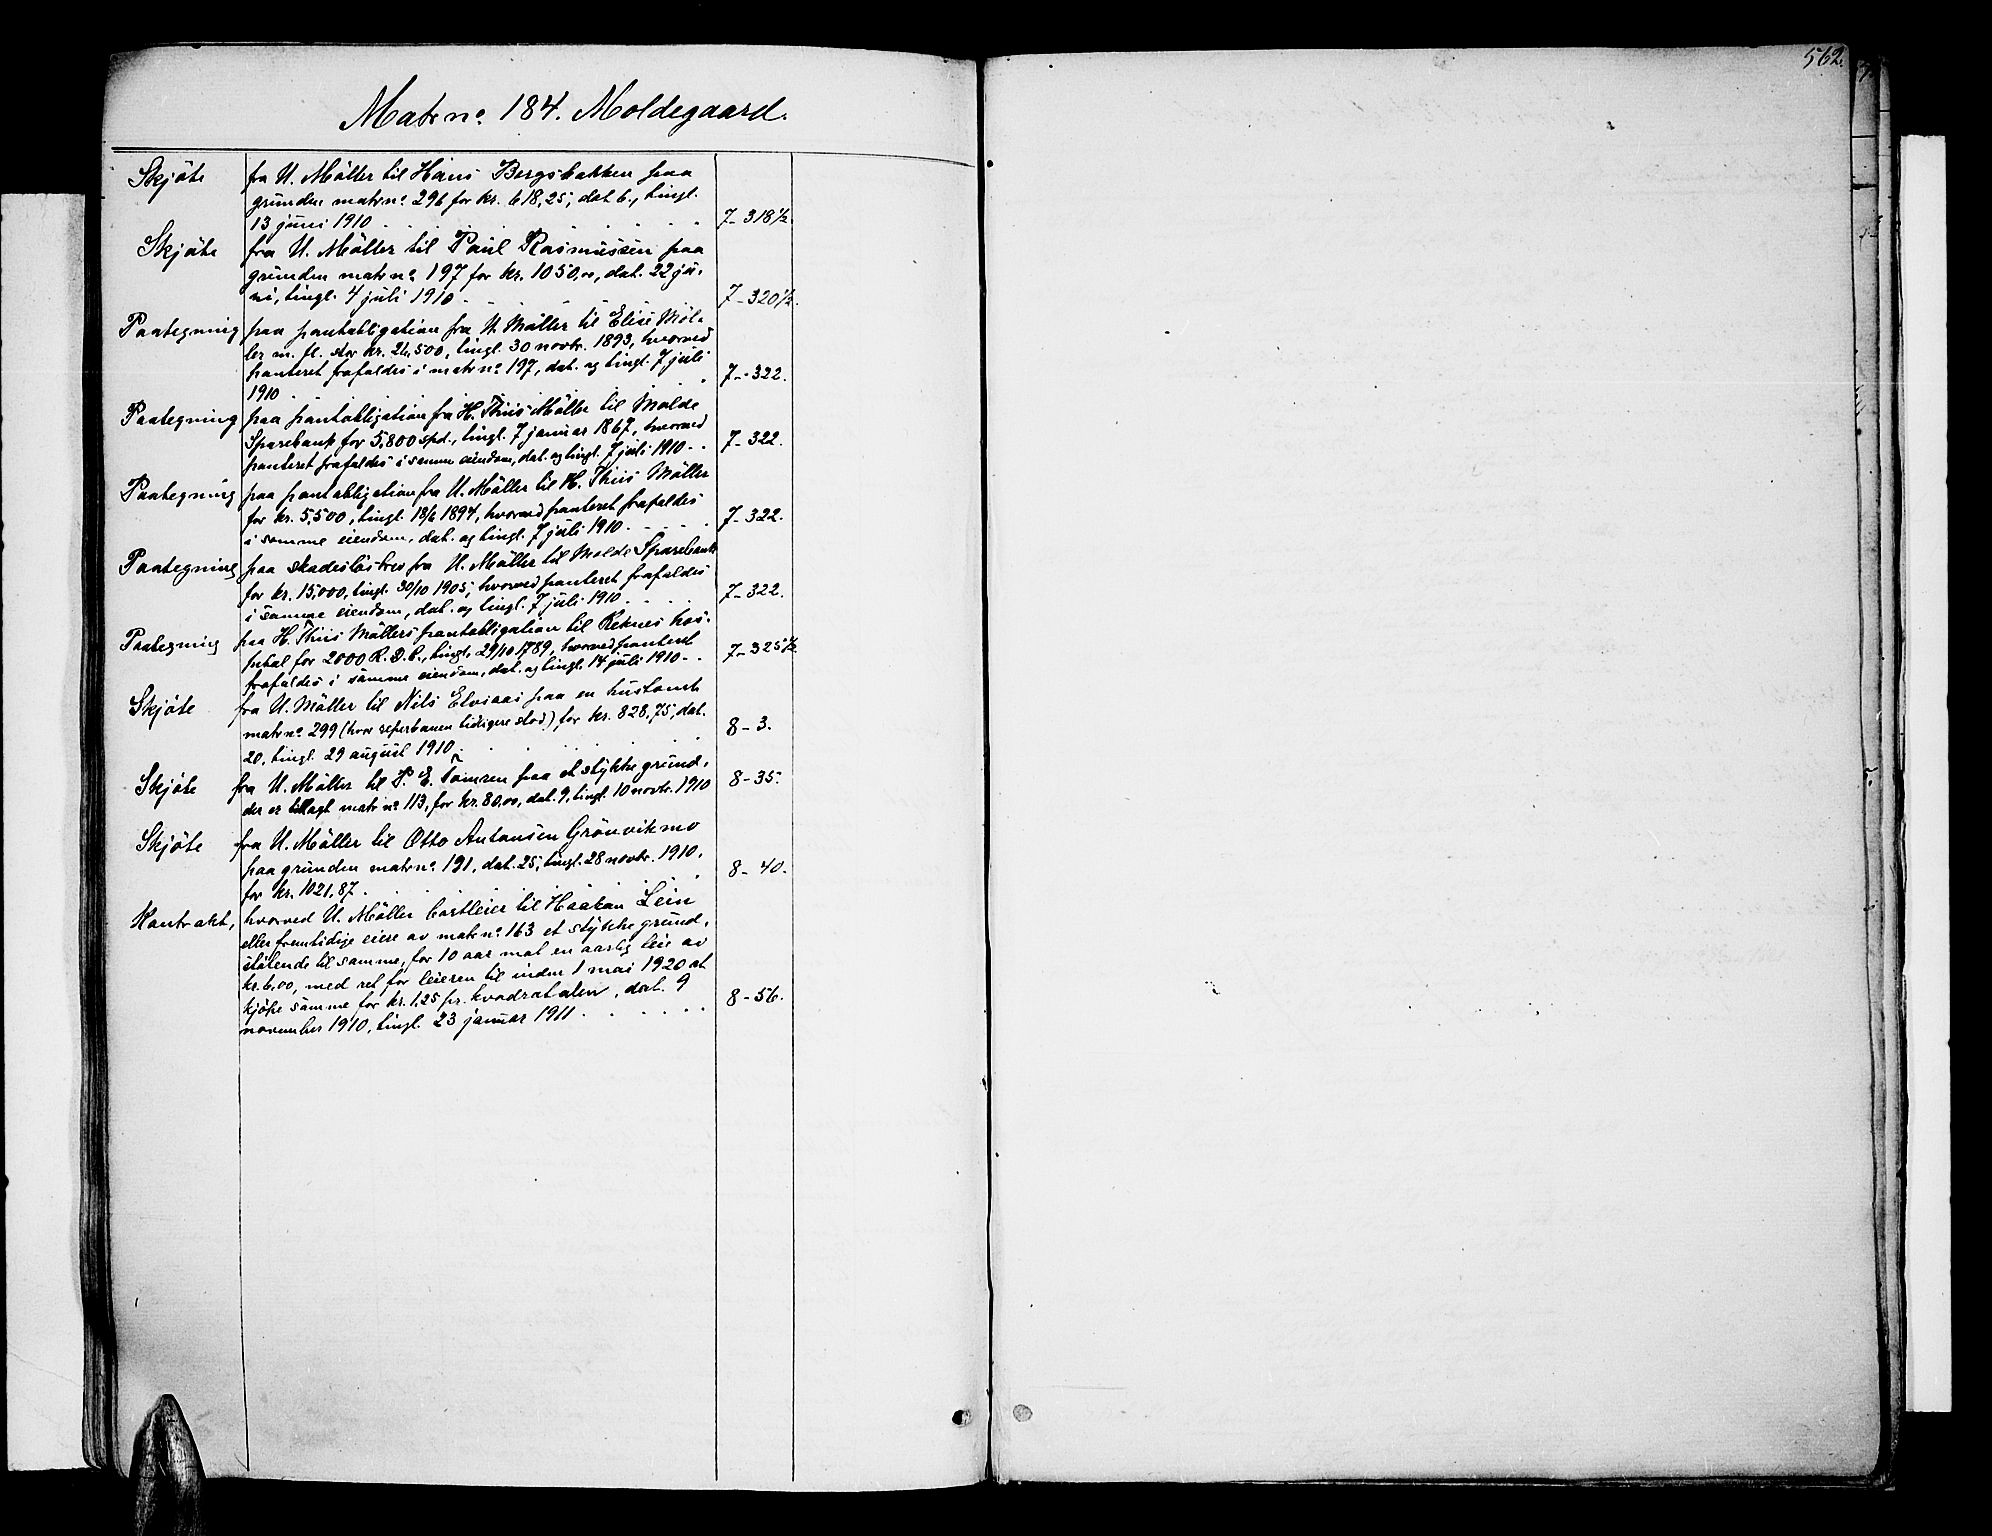 562.
Matr nº 184. Moldegaard.
Skjöte fra U. Möller til Hans Bergsbakken paa
grunden matr nº 296 for kr. 618,25, dat 6., tingl.
13 juni 1910 . . . . . . 7-318½.
Skjöte fra U. Möller til Paul Rasmussen paa
grunden matr nº 197 for kr. 1050,00, dat. 22 ju-
ni, tingl. 4 juli 1910 . . . . 7-320½.
Paategning paa pantobligation fra U. Möller til Elise Möl-
ler m. fl. stor kr. 26,500, tingl. 30 novbr. 1893, hvorved
panteret frafaldes i matr nº 197, dat. og tingl. 7 juli 7-322.
1910 . . . . . .
Paategning paa pantobligation fra H. Thiis Möller til Molde
Sparebank for 5,800 spd., tingl. 7 januar 1867, hvorved 7-322.
panteret frafaldes i samme eiendom, dat. og tingl. 7 juli 1910 . .
Paategning paa pantobligation fra U. Möller til H. Thiis Möller
for kr. 5,500, tingl. 18/6 1894, hvorved panteret frafaldes 7-322.
i samme eiendom, dat. og tingl. 7 juli 1910 . . . .
Paategning paa skadeslösbrev fra U. Möller til Molde Sparebank
for kr. 15,000, tingl. 30/10 1905, hvorved panteret frafaldes 7-322.
i samme eiendom, dat. og tingl. 7 juli 1910 . . . .
Paategning paa H. Thiis Möllers pantobligation til Reknes hos-
pital for 2000 R. D. C., tingl. 29/10 1789, hvorved panteret 7-325½
frafaldes i samme eiendom, dat. og tingl. 14 juli 1910 . .
Skjöte fra U. Möller til Nils Elvsaas paa en hustomt
matr nº 299 (hvor reperbanen tidligere stod) for kr. 828,75, dat. 8-3.
20, tingl. 29 august 1910 . . . . . .
Skjöte fra U. Möller til P. E. Tömren paa et stykke grund,
der er tillagt matr nº 113, for kr. 80,00, dat. 9, tingl. 10 novbr. 1910 8-35.
Skjöte fra U. Möller til Otto Antonsen Grönvikmo
paa grunden matr nº 191, dat. 25, tingl. 28 novbr. 1910, 8-40.
for kr. 1021,87 . . . . . .
Kontrakt, hvorved U. Möller bortleier til Haakon Lein
eller fremtidige eiere av matr nº 163 et stykke grund,
stötende til samme, for 10 aar mot en aarlig leie av
kr. 6,00, med ret for leieren til inden 1 mai 1920 at
kjöpe samme for kr. 1,25 pr. kvadratalen, dat. 9 8-56.
november 1910, tingl. 23 januar 1911 . . . . . .